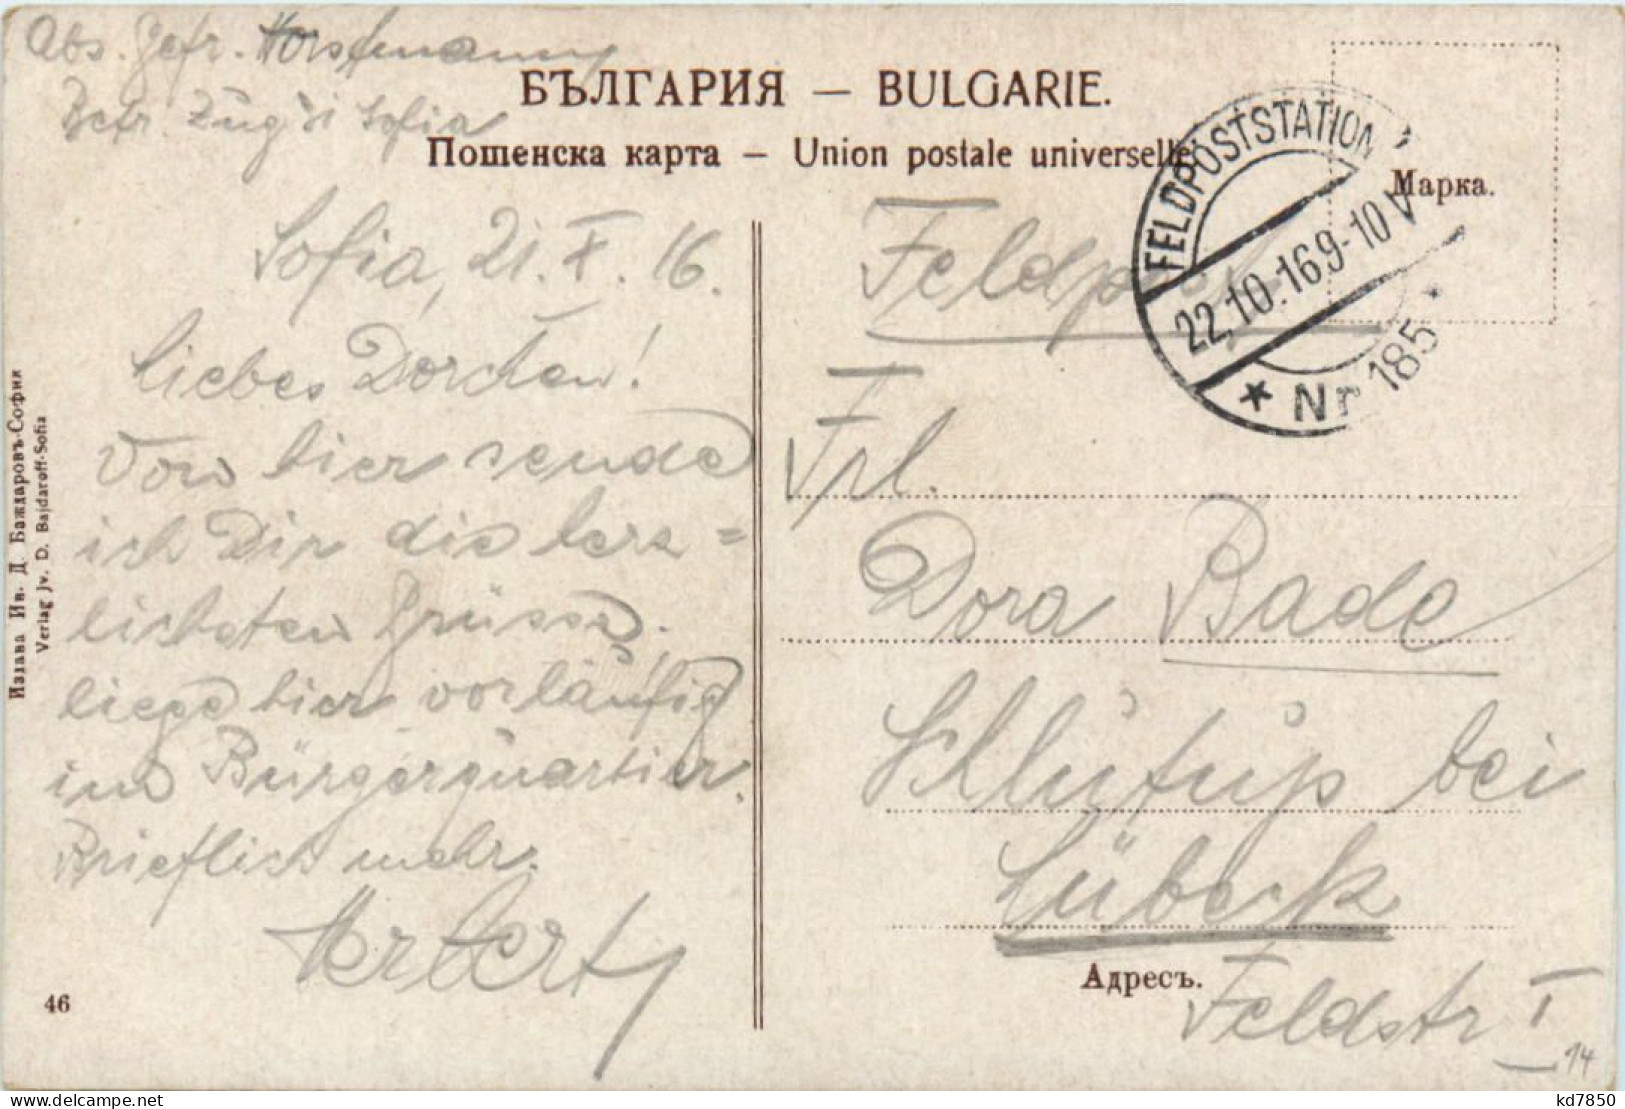 Abs. Gefr. Horstmann
Betr. Zug i Sofia
БЪЛГАРИЯ — BULGARIE.
Пошенска карта — Union postale universelle
Марка.
FELDPOSTSTATION
22.10.16 9-10 V
* Nr 185 *
Sofia, 21. X. 16.
Liebes Dorchen!
Von hier sende
ich Dir die herz=
lichsten Grüsse.
liege hier vorläufig
im Bürgerquartier.
Brieflich mehr.
Herbert
Feldpost
Frl.
Dora Bade
Schlutup bei
Lübeck
Адресъ.
Feldstr I
14
Издава Ив. Д. Бажларовъ-София
Verlag Jv. D. Bajdaroff-Sofia
46
kd7850